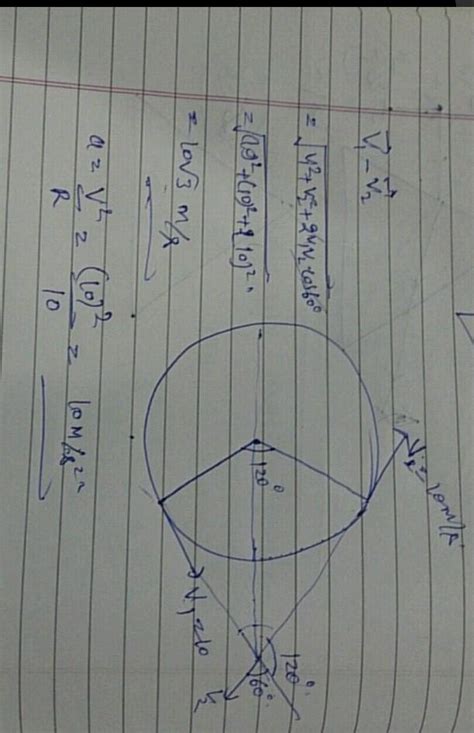 V₁ - V₂
= √V₁²+V₂²+2V₁V₂cos60°
= √(10)²+(10)²+2(10)²
= 10√3 m/s
a = V²/R = (10)²/10 = 10m/s²
V₂=10m/s
120°
V₁=10
120°
60°
V₂